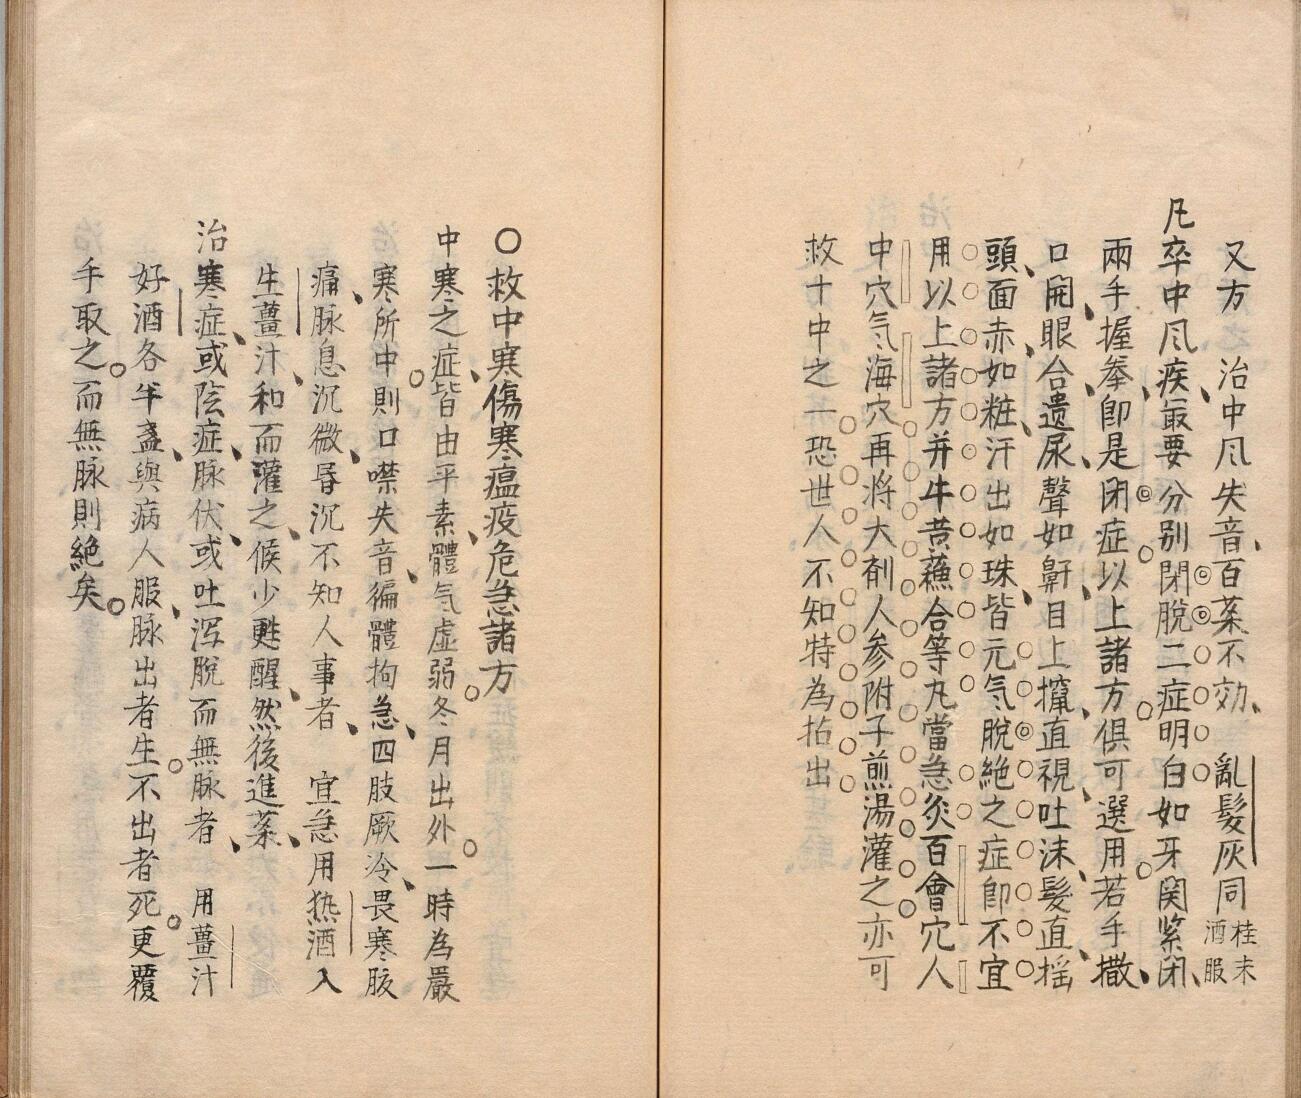 又方　治中风失音百药不効　亂髮灰同桂末酒服
凡卒中风疾最要分别閉脫二症明白如牙関緊闭
兩手握拳卽是闭症以上諸方俱可選用若手撒
口開眼合遺尿聲如鼾目上攛直視吐沫髮直揺
頭面赤如粧汗出如珠皆元气脫絶之症卽不宜
用以上諸方并牛黄蘓合等丸當急灸百會穴人
中穴气海穴再将大剤人参附子煎湯灌之亦可
救十中之一恐世人不知特為拈出
○救中寒傷寒瘟疫危急諸方
中寒之症皆由平素體气虛弱冬月出外一時為嚴
寒所中則口噤失音徧體拘急四肢厥冷畏寒腹
痛脉息沉微昏沉不知人事者　宜急用热酒入
生薑汁和而灌之候少甦醒然後進药
治寒症或陰症脉伏或吐泻脫而無脉者　用薑汁
好酒各半盞與病人服脉出者生不出者死更覆
手取之而無脉則絶矣